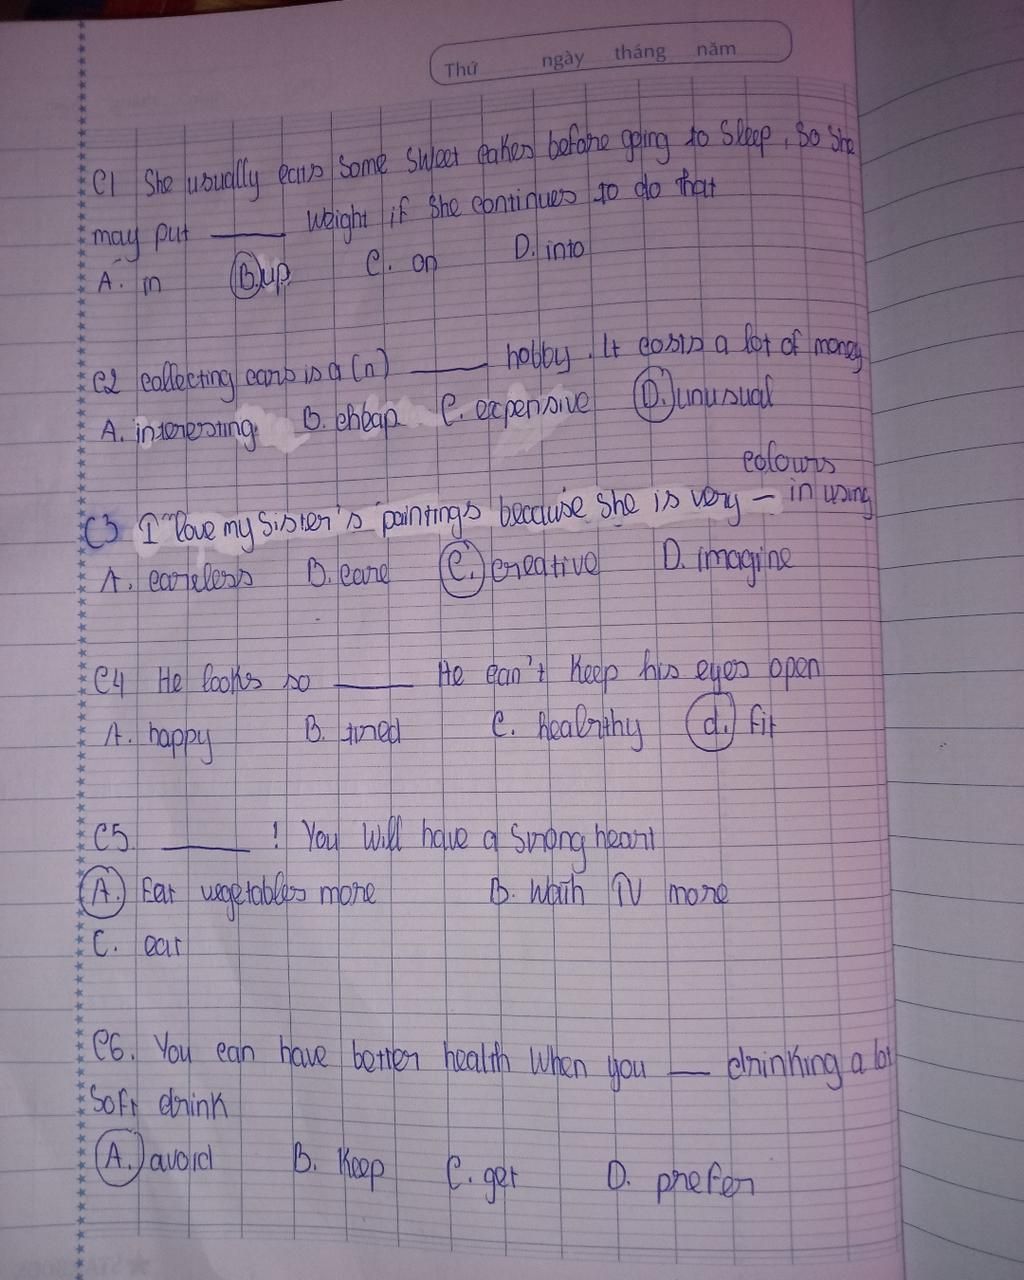 Thứ ngày tháng năm
C1 She usually eats some sweet cakes before going to sleep, so she
may put ____ weight if she continues to do that
A. in B. up C. on D. into
C2 collecting cars is a (n) ____ hobby. It costs a lot of money
A. interesting B. cheap C. expensive D. unusual
colours
C3 I love my sister's paintings because she is very — in using
A. careless B. care C. creative D. imagine
C4 He looks so ____ He can't keep his eyes open
A. happy B. tired C. healthy d. fit
C5 ____ ! You will have a strong heart
A. Eat vegetables more B. Wath TV more
C. eat
C6. You can have better health when you __ drinking a lot
Soft drink
A. avoid B. Keep C. get D. prefer